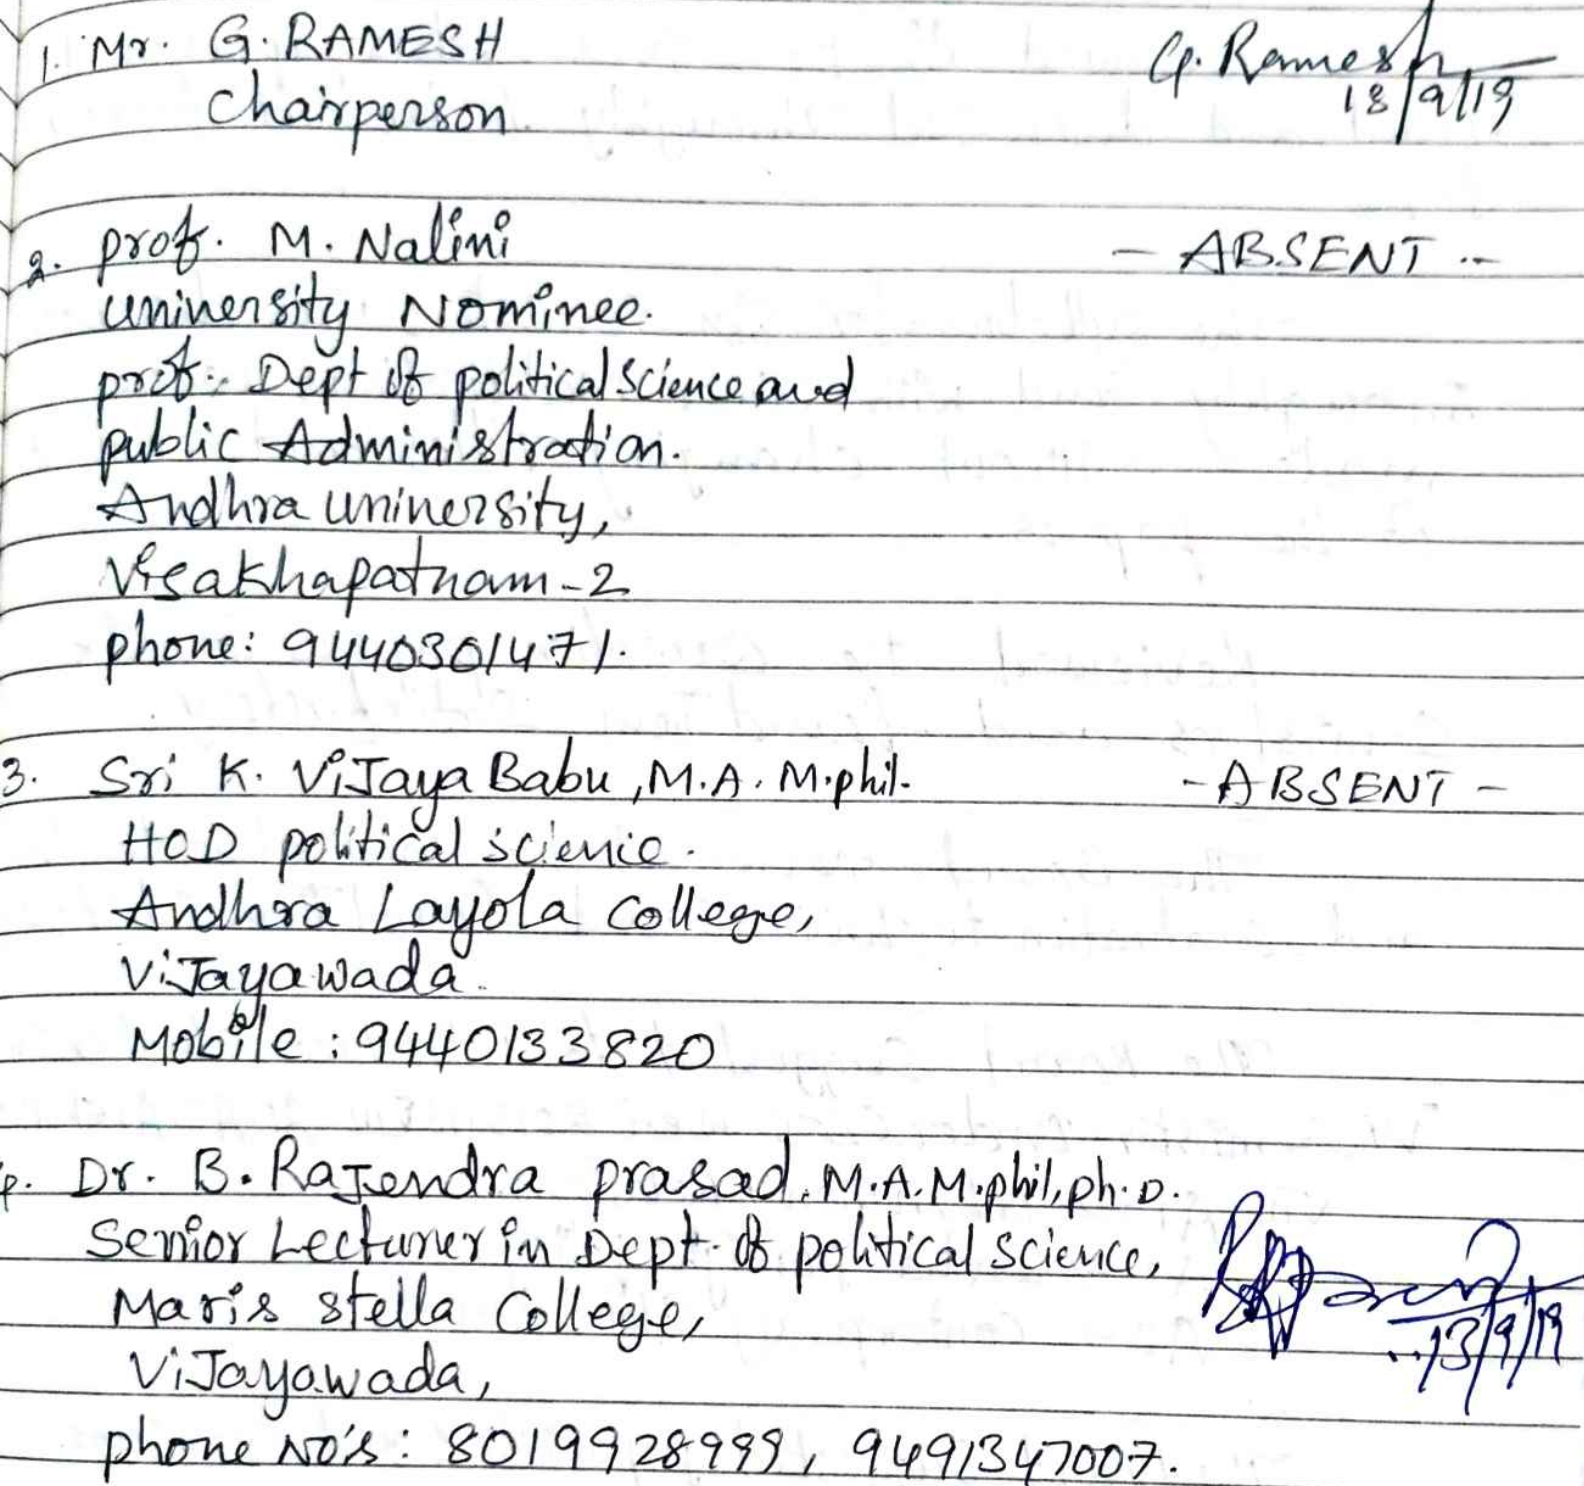 1. Mr. G. RAMESH G. Ramesh
Chairperson. 13/9/19
2. prof. M. Nalini - ABSENT -
University Nominee.
prof. Dept of political Science and
public Administration.
Andhra University,
Visakhapatnam-2
phone: 9440301471.
3. Sri K. ViJaya Babu, M.A. M.phil. - ABSENT -
HOD political science.
Andhra Layola College,
ViJayawada.
Mobile: 9440133820
4. Dr. B. RaJendra prasad, M.A. M.phil, ph.D.
Senior Lecturer in Dept. of political science,
Maris stella College, 13/9/19
ViJayawada,
phone No's: 8019928999, 9491347007.